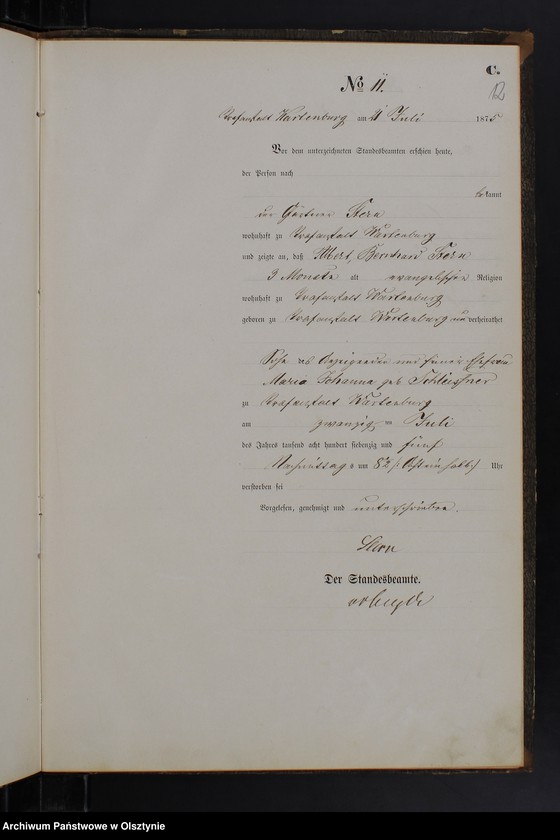 C.
12
No 11.
Strafanstalt Wartenburg am 21 Juli 1875
Vor dem unterzeichneten Standesbeamten erschien heute,
der Person nach
bekannt
der Stern
wohnhaft zu Strafanstalt Wartenburg
und zeigte an, daß Albert, Bernhard Stern
3 Monate alt evangelischer Religion
wohnhaft zu Strafanstalt Wartenburg
geboren zu Strafanstalt Wartenburg unverheirathet
Sohn des Anzeigenden und seiner Ehefrau
Maria Johanna geb
zu Strafanstalt Wartenburg
am zwanzig ten Juli
des Jahres tausend acht hundert siebenzig und fünf
Nachmittags um 8½ Uhr
verstorben sei
Vorgelesen, genehmigt und unterschrieben.
Stern
Der Standesbeamte.
Archiwum Państwowe w Olsztynie